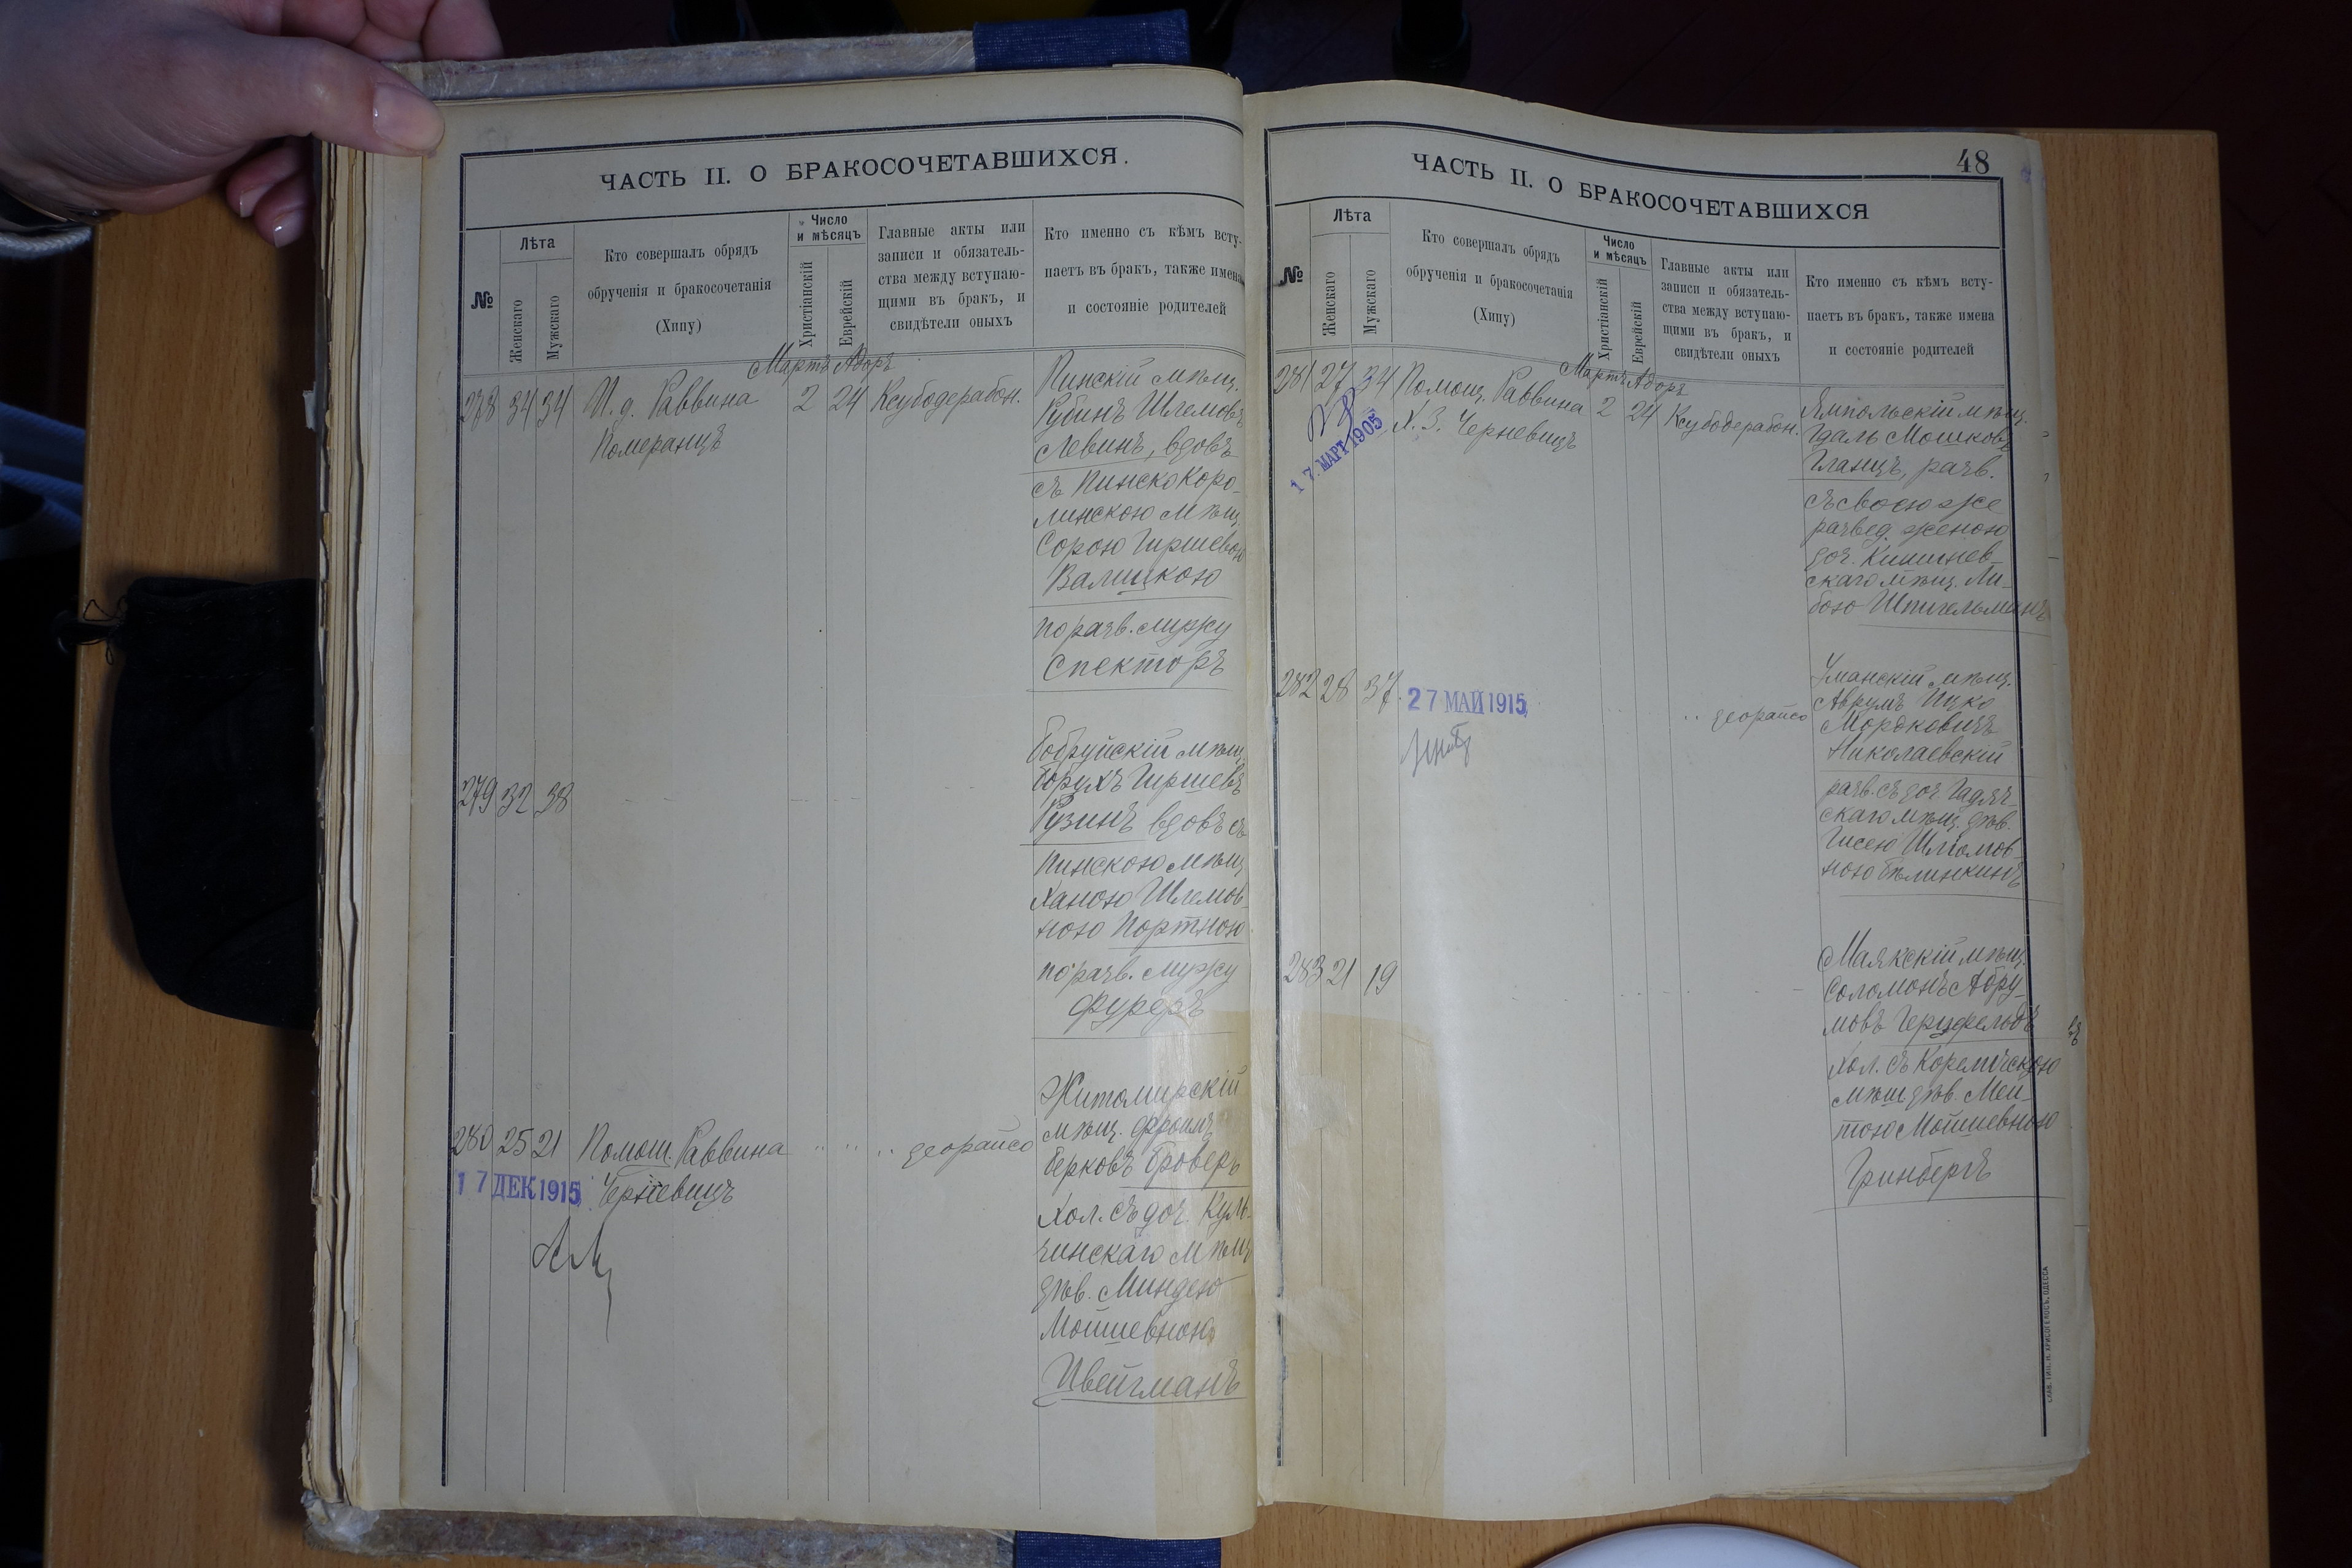 ЧАСТЬ II. О БРАКОСОЧЕТАВШИХСЯ.
№
Лѣта
Женскаго
Мужскаго
Кто совершалъ обрядъ
обрученія и бракосочетанія
(Хипу)
Число
и мѣсяцъ
Христіанскій
Еврейскій
Главные акты или
записи и обязатель-
ства между вступаю-
щими въ бракъ, и
свидѣтели оныхъ
Кто именно съ кѣмъ всту-
паетъ въ бракъ, также имена
и состояніе родителей
Мартъ Адоръ
278 34 34 И.д. Раввина 2 24 Ксубодерабон.
Померанцъ
Пинскій мѣщ.
Рубинъ Шлемовъ
Левинъ, вдовъ
съ Пинско Каро-
линскою мѣщ.
Сорою Гиршевою
Валицкою
по разв. мужу
Спекторъ
279 32 38
Бобруйскій мѣщ.
Борухъ Гиршевъ
Рузинъ вдовъ съ
Пинскою мѣщ
Ханою Шлемов-
ною Портною
по разв. мужу
Фуреръ
280 25 21 Помощ. Раввина деорайсо
17 ДЕК 1915 Черневицъ
Житомирскій
мѣщ. Фроимъ
Берковъ Броверъ
Хол. съ доч. Куль-
чинскаго мѣщ
дѣв. Миндею
Мошиевною
Цвейгманъ
48
ЧАСТЬ II. О БРАКОСОЧЕТАВШИХСЯ
№
Лѣта
Женскаго
Мужскаго
Кто совершалъ обрядъ
обрученія и бракосочетанія
(Хипу)
Число
и мѣсяцъ
Христіанскій
Еврейскій
Главные акты или
записи и обязатель-
ства между вступаю-
щими въ бракъ, и
свидѣтели оныхъ
Кто именно съ кѣмъ всту-
паетъ въ бракъ, также имена
и состояніе родителей
Мартъ Адоръ
281 27 34 Помощ. Раввина 2 24 Ксубодерабон.
Х. З. Черневицъ
17. МАРТ 1905
Ямпольскій мѣщ.
Идаль Мошковъ
Гланцъ, разв.
съ своею же
развед. женою
доч. Кишинев-
скаго мѣщ. Ли-
бою Шпигельманъ
282 28 37 деорайсо
27 МАЙ 1915
Уманскій мѣщ.
Аврумъ Ицко
Мордковичъ
Николаевскій
разв. съ доч. Гадяч-
скаго мѣщ. дѣв.
Гисею Шлиомов-
ною Бѣлинкинъ
283 21 19
Маякскій мѣщ.
Соломонъ Абру-
мовъ Герцфельдъ
Хол. съ Корелическою
мѣщ дѣв. Мен-
тою Мошиевною
Гринбергъ
СЛАВ. ТИП. Н. ХРИСОГЕЛОСЪ, ОДЕССА